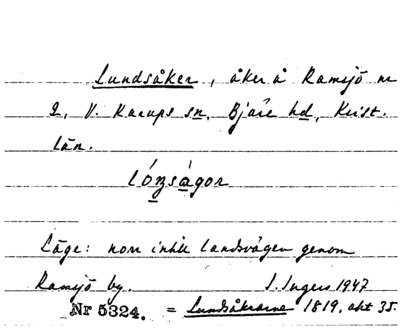 Lundsåker, åker å Ramsjö nr
2, V. Karups sn, Bjäre hd, Krist.
län.
Läge: norr intill landsvägen genom
Ramsjö by. I. Ingers 1947
Nr 5324. = Lundsåkrarne 1819, akt 35.